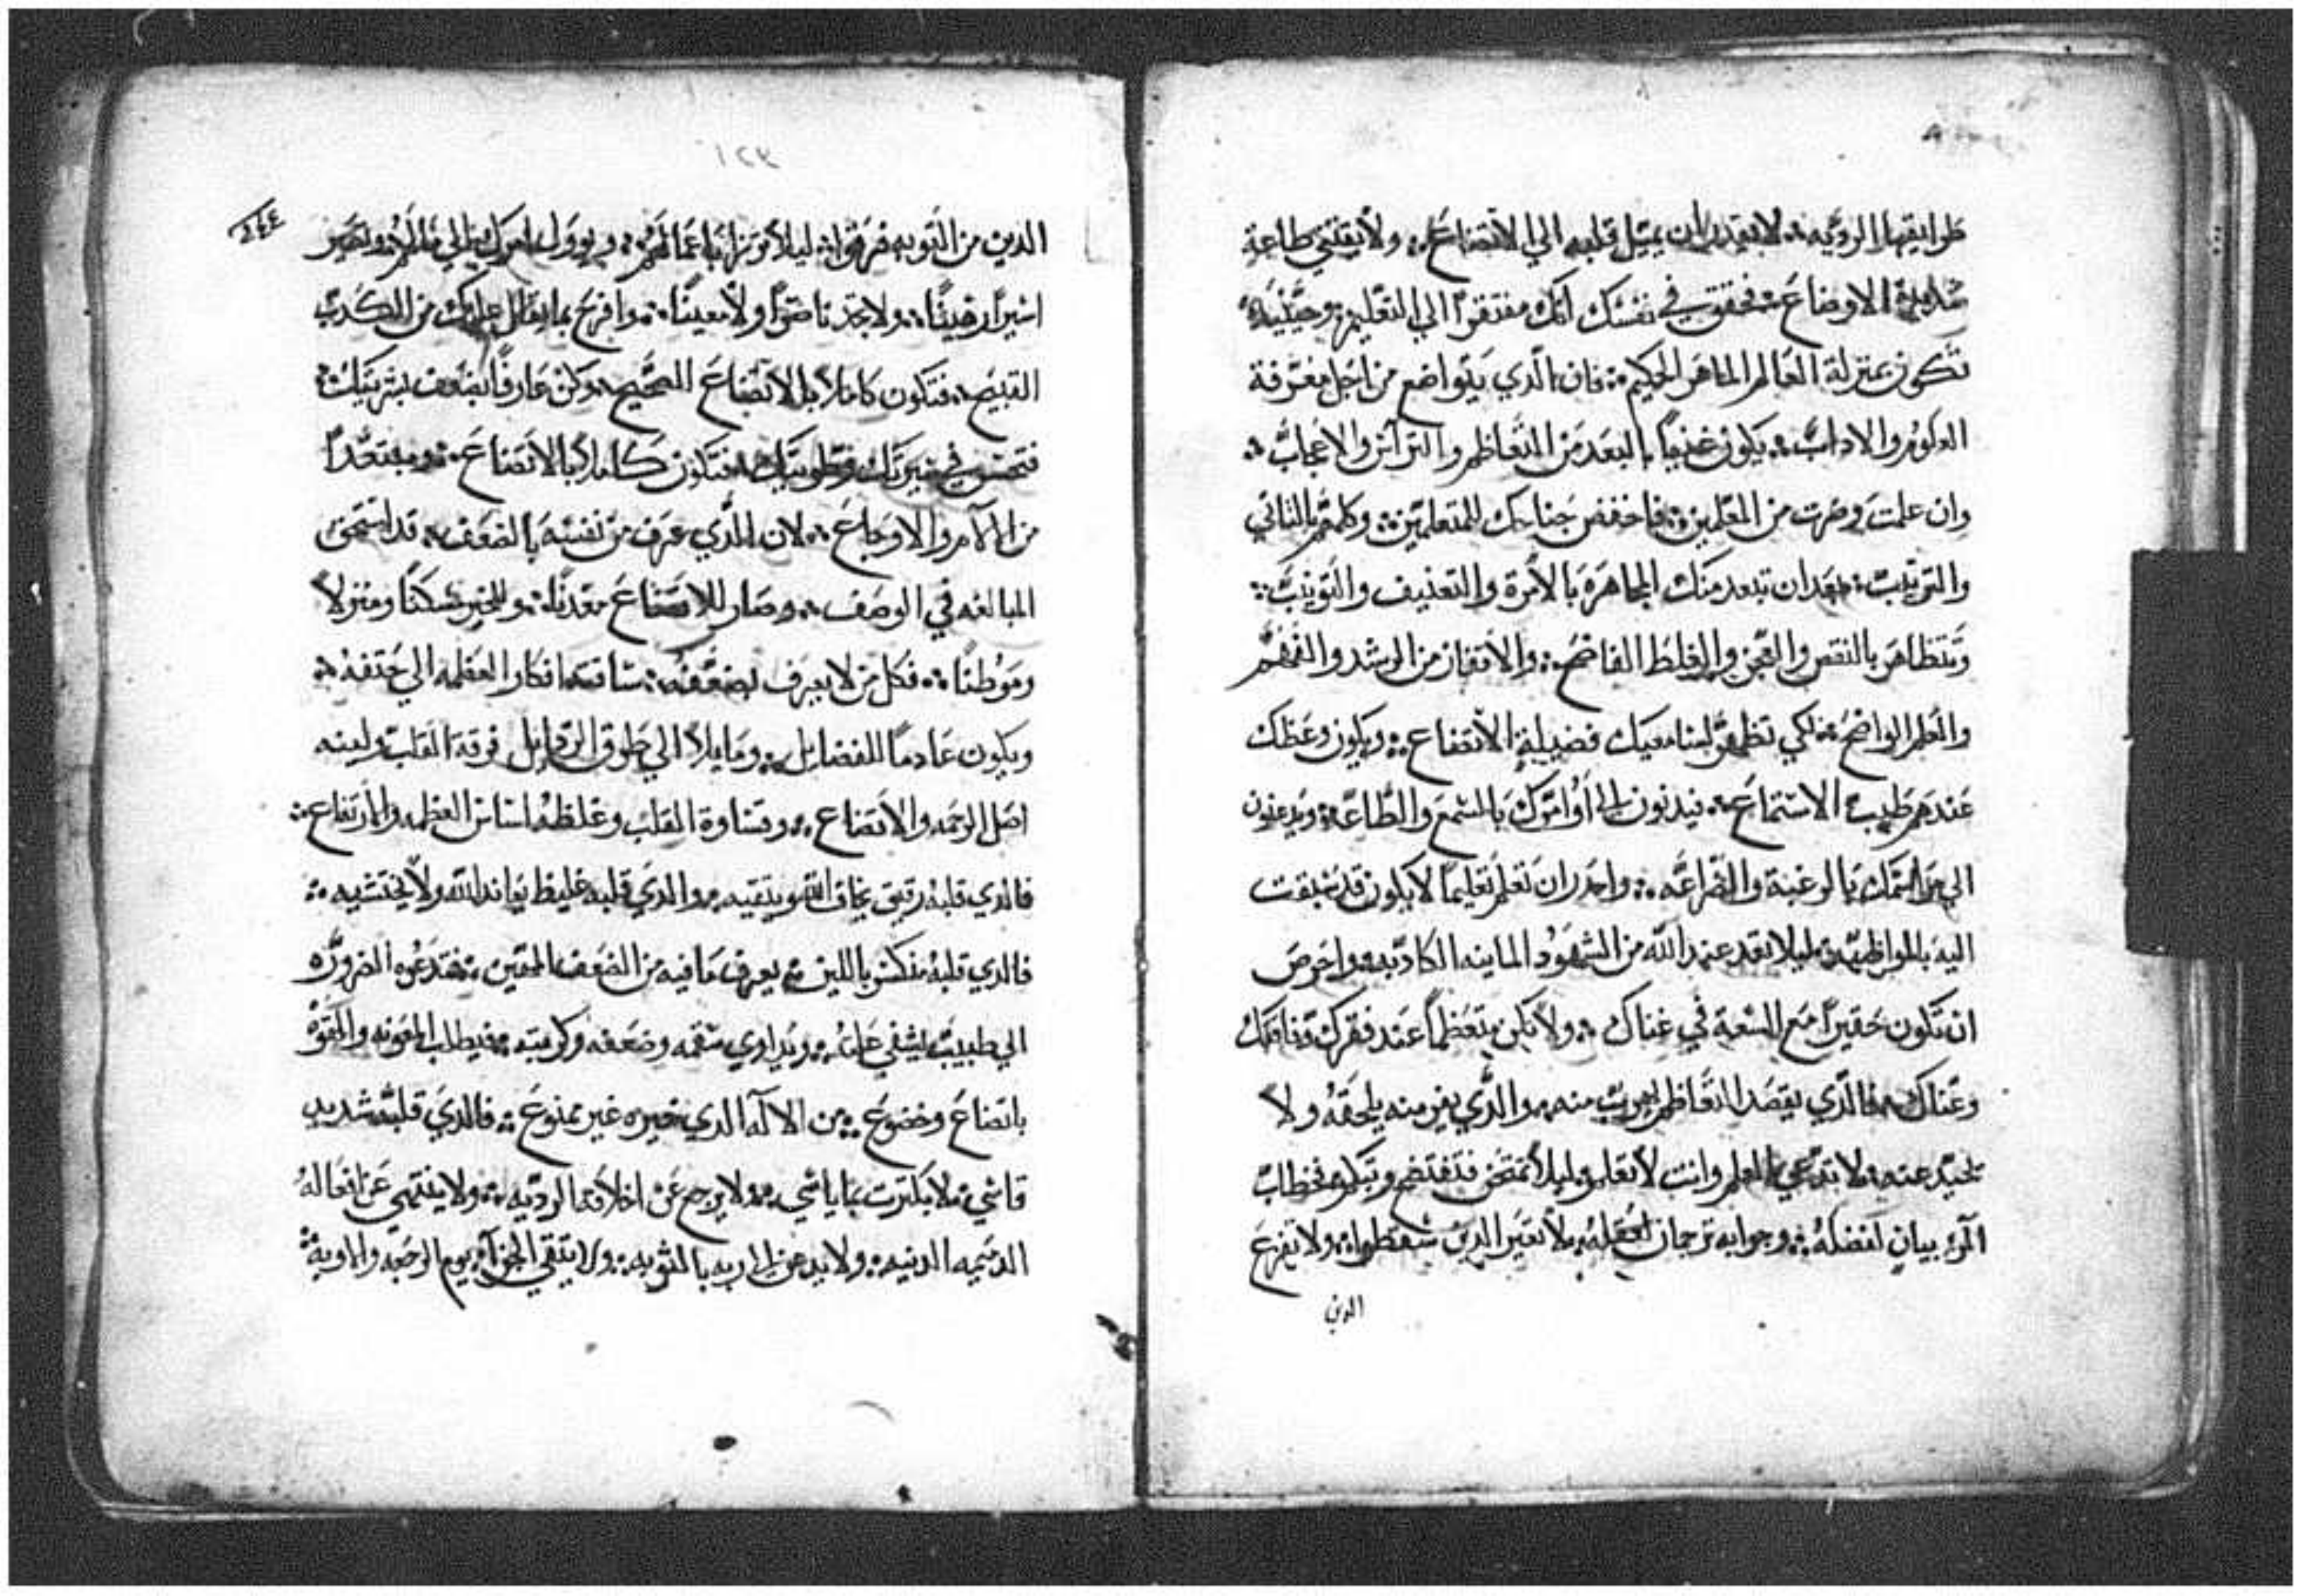 طرايقها الرديه لا يقدر ان يميل قلبه الي الاتضاع ولا يقتني طاعة
الاوضاع فحقق في نفسك انك مفتقرًا الي التعليم وحينيذٍ
تكون بمنزلة العالم الماهر الحكيم فان الدي يتواضع من اجل معرفة
العلوم والاداب يكون غنيًا بالبعد من التعاظم والتراس والاعجاب
وان علمت وصرت من المعلمين فاخفض جناحك للمتعلمين وكلمهم بالتاني
والترتيب بعد ان تبعد منك المجاهره بالامرة والتعنيف والتونيب
وتتظاهر بالنقص والعجز والغلط الفاضح والاقفاز من الرشد والفهم
والعلم الواضح لكي تظهر لسامعيك فضيلة الاتضاع ويكون وعظك
عندهم طيب الاستماع فيدنون الي أوامرك بالسمع والطاعه ويدعنون
الي بالرغبة والضراعه واحدر ان تعلم تعليمًا لا يكون قد سبقت
اليه ليلا تعد عند الله من الشهود الماينه الكادبه واحرص
ان تكون حقيرًا مع السعة في غناك ولا تكن متعظمًا عند فقرك وفاقتك
وعناك فالدي يقصد التعاظم يهرب منه والدي يفر منه يلحقه ولا
يحيد عنه لا تدعي العلم وانت لا تعلم ليلا تمتحن فتفتضح وتبكم فخطاب
المرء بيان لفضله وجوابه ترجمان لعقله لا تعير الدين سقطوا ولا تفزع
الدين
١٢٣
٢٤٤
الدين من التوبه فرقوا ليلا توزر باعمالهم ويوول امرك الي مالهم وتصير
اسيرًا رهينًا ولا تجد ناصرًا ولا معينًا وافرح بما يقال عليك من الكدب
القبيح فتكون كاملًا بالاتضاع الصحيح وكن عارفًا بضعف بشريتك
فتحسن في سيرتك وطويتك فتكون كاملًا بالاتضاع ومبتعدًا
من الآلام والاوجاع لان الدي عرف من نفسه بالضعف قد استحق
المبالغه في الوصف وصار للاتضاع معدنًا وللخير مسكنًا ومنزلًا
وموطنًا فكل من لا يعرف بضعفه ساقته افكار العظمه الي حتفه
ويكون عادمًا للفضايل ومايلًا الي طرق الردايل فرقة القلب ولينه
اصل الرحمه والاتضاع وقساوة القلب وغلظه اساس العظمه والارتفاع
فالدي قلبه رقيق يخاف الله ويتقيه والدي قلبه غليظ يعاند الله ولا يختشيه
فالدي قلبه منكسر باللين يعرف ما فيه من الضعف المهين فتدعوه الضروره
الي طبيب ليشفي علته ويداوي سقمه وضعفه وكربته فيطلب المعونه والقوه
باتضاع وخضوع من الالآه الدي خيره غير ممنوع فالدي قلبه شديد
قاسي لا يكترت بما ياسي ولا يرجع عن اخلاقه الرديه ولا ينتهي عن افعاله
الدميمه الدنيه ولا يدعن الي ربه بالتوبه ولا يتقي الجزآء يوم الرجعه والاوبه